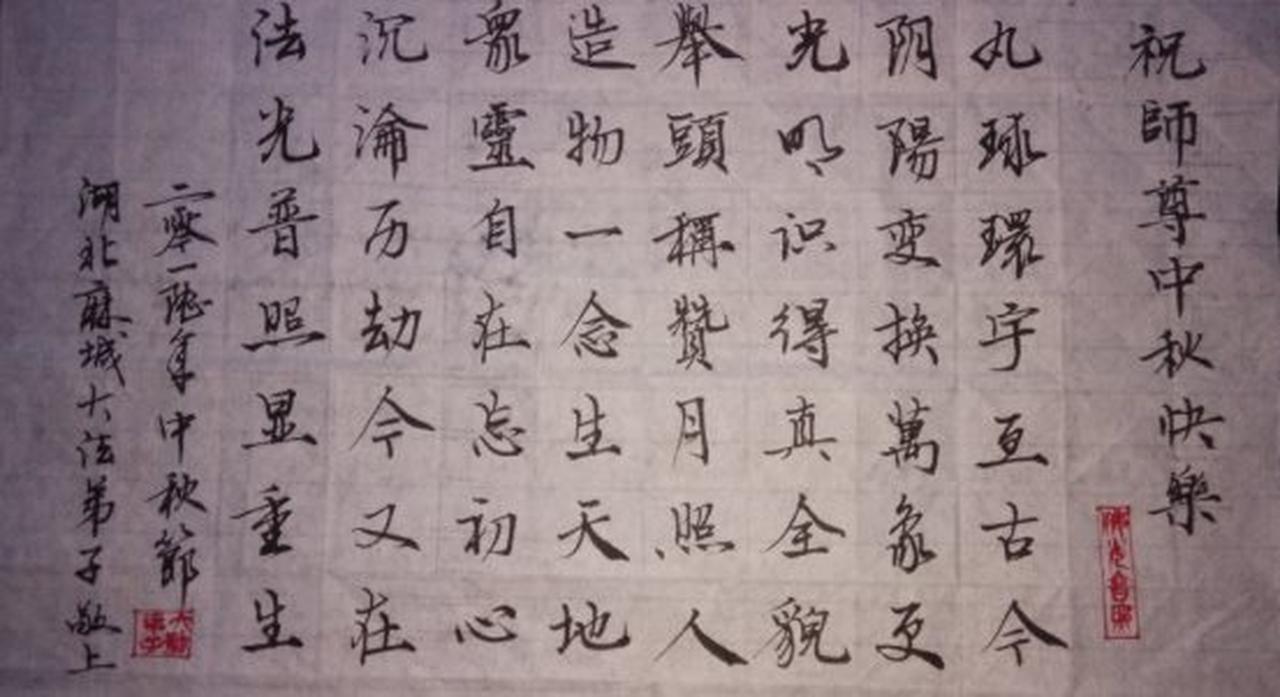 祝師尊中秋快樂
丸球環宇亙古今
阴陽变换萬象更
光明识得真全貌
舉頭稱贊月照人
造物一念生天地
衆靈自在忘初心
沉淪历劫今又在
法光普照显重生
二零一陸年中秋節
湖北麻城大法弟子敬上
佛光普照